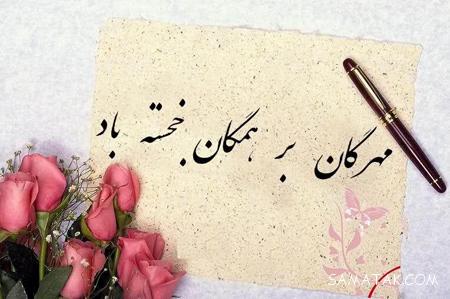 مهرگان بر همگان خجسته باد
SAMATAK.COM